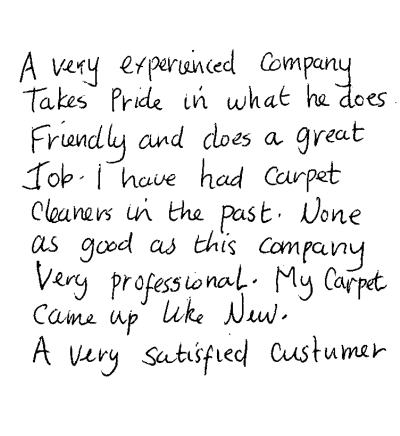 A very experienced Company
Takes Pride in what he does.
Friendly and does a great
Job. I have had Carpet
Cleaners in the past. None
as good as this company
Very professional. My Carpet
Came up like New.
A very satisfied Custumer